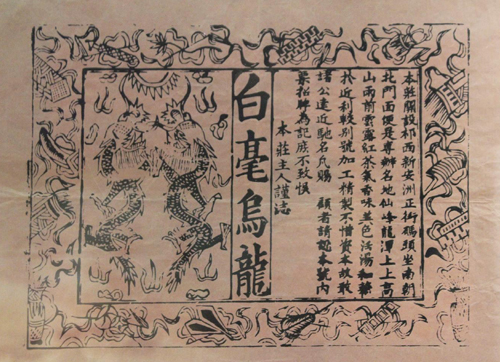 本莊開設祁西新安洲正街碼頭坐南朝
北門面便是專辦名地仙峰龍潭上上高
山雨前雲霧紅茶氣香味並色活湯和
於近利較別號加工精製不惜資本故敢
諸公遠近馳名凡賜 顧者請認本號內
票招牌為記庶不致悞
本莊主人謹誌
白毫烏龍